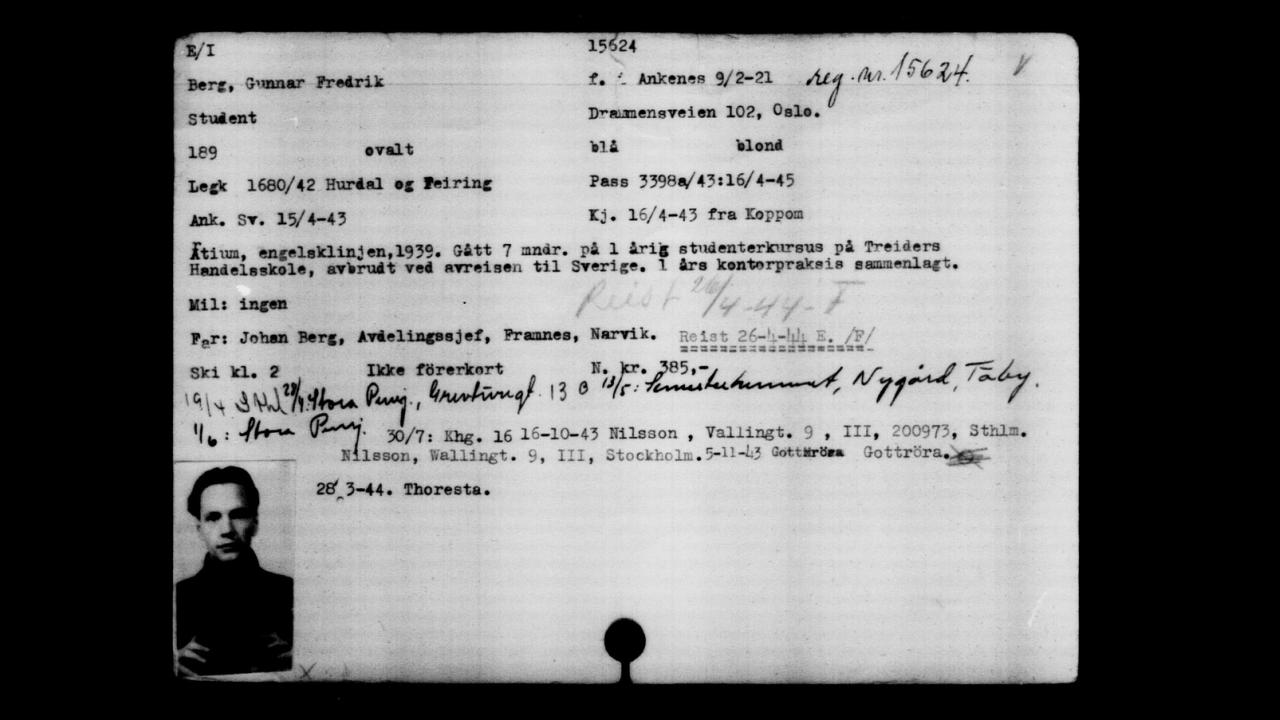 E/I 15624
Berg, Gunnar Fredrik f. Ankenes 9/2-21 reg. nr. 15624. V
Student Drammensveien 102, Oslo.
189 ovalt blå blond
Legk 1680/42 Hurdal og Feiring Pass 3398a/43:16/4-45
Ank. Sv. 15/4-43 Kj. 16/4-43 fra Koppom
Atium, engelsklinjen,1939. Gått 7 mndr. på 1 årig studenterkursus på Treiders
Handelsskole, avbrudt ved avreisen til Sverige. 1 års kontorpraksis sammenlagt.
Mil: ingen Reist 26/4-44-F
Far: Johan Berg, Avdelingssjef, Framnes, Narvik. Reist 26-4-44 E. /F/
Ski kl. 2 Ikke förerkort N. kr. 385,-
19/4 28/4. Stora 13 B 13/5: Nygård, Täby.
1/6: Stora 30/7: Khg. 16 16-10-43 Nilsson , Vallingt. 9 , III, 200973, Sthlm.
Nilsson, Wallingt. 9, III, Stockholm. 5-11-43 Gottröra Gottröra.
28 3-44. Thoresta.